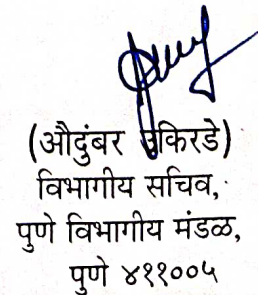 (औदुंबर उकिरडे)
विभागीय सचिव,
पुणे विभागीय मंडळ,
पुणे ४११००५